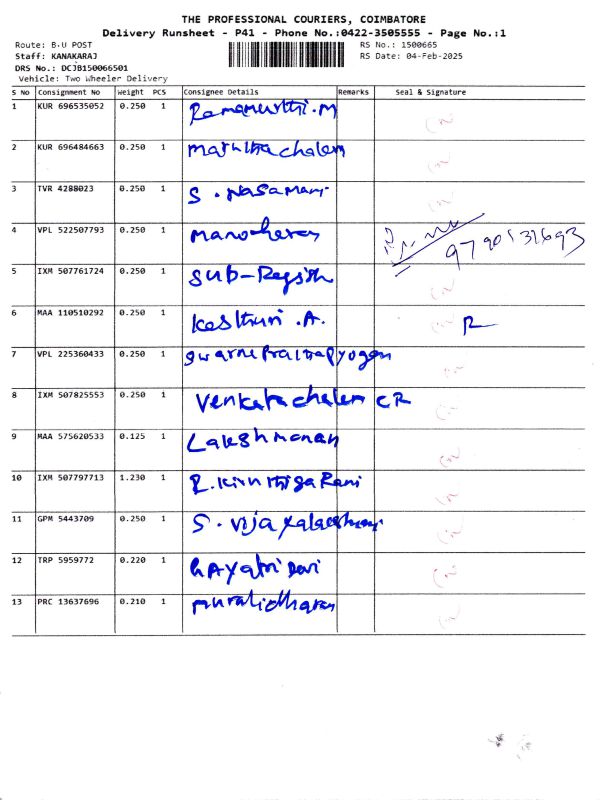 THE PROFESSIONAL COURIERS, COIMBATORE
Delivery Runsheet - P41 - Phone No.:0422-3505555 - Page No.:1
Route: B.U POST
RS No.: 1500665
Staff: KANAKARAJ
RS Date: 04-Feb-2025
DRS No.: DCJB150066501
Vehicle: Two Wheeler Delivery
S No Consignment No Weight PCS Consignee Details Remarks Seal & Signature
1 KUR 696535052 0.250 1 Ramamurthi.M
2 KUR 696484663 0.250 1 maruthachalam
3 TVR 4288023 0.250 1 S.
4 VPL 522507793 0.250 1 manoharan 9790131693
5 IXM 507761724 0.250 1 SUB-Regist
6 MAA 110510292 0.250 1 Kasthuri .A. R
7 VPL 225360433 0.250 1
8 IXM 507825553 0.250 1 Venkatachalam CR
9 MAA 575620533 0.125 1 Lakshmanan
10 IXM 507797713 1.230 1 Rani
11 GPM 5443709 0.250 1 S. Vijayalakshmi
12 TRP 5959772 0.220 1 GAyatri Devi
13 PRC 13637696 0.210 1 muralidharan